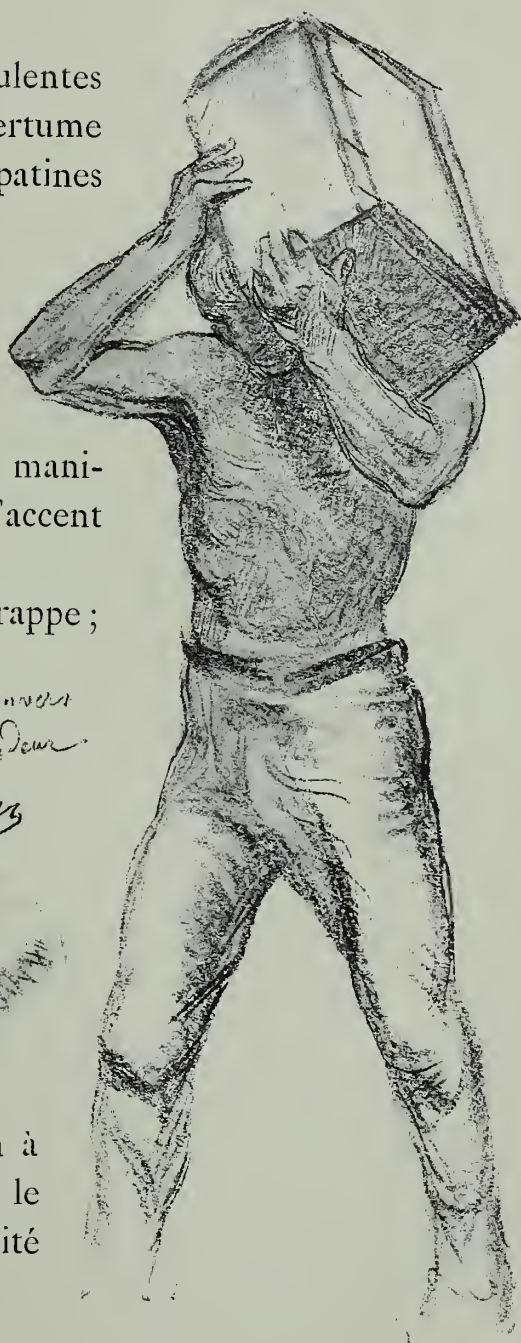 ulentes
ertume
patines
mani-
'accent
rappe ;
à
le
ité